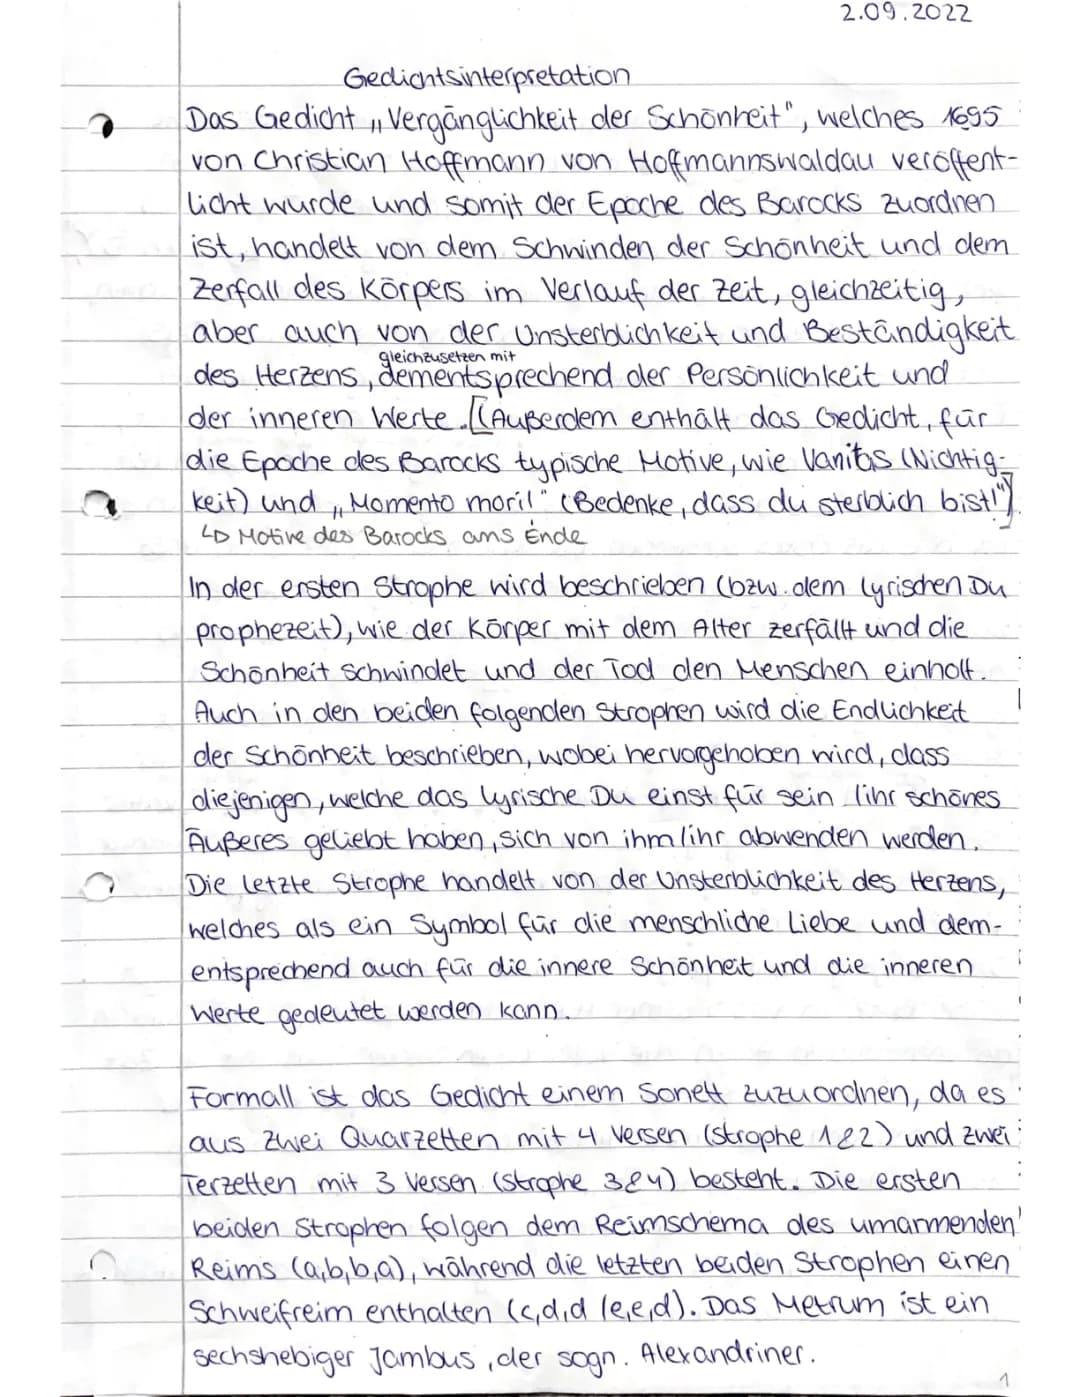 2.09.2022
Gedichtsinterpretation
Das Gedicht „Vergänglichkeit der Schönheit", welches 1695
von Christian Hoffmann von Hoffmannswaldau veröffent-
licht wurde und somit der Epoche des Barocks zuordnen
ist, handelt von dem Schwinden der Schönheit und dem
Zerfall des Körpers im Verlauf der Zeit, gleichzeitig,
aber auch von der Unsterblichkeit und Beständigkeit
gleichzusetzen mit
des Herzens, dementsprechend der Persönlichkeit und
der inneren Werte. [(Außerdem enthält das Gedicht, für
die Epoche des Barocks typische Motive, wie Vanitas (Nichtig-
keit) und „Momento mori!" (Bedenke, dass du sterblich bist!")].
↳ Motive des Barocks ans Ende
In der ersten Strophe wird beschrieben (bzw. dem lyrischen Du
prophezeit), wie der Körper mit dem Alter zerfällt und die
Schönheit schwindet und der Tod den Menschen einholt.
Auch in den beiden folgenden Strophen wird die Endlichkeit
der Schönheit beschrieben, wobei hervorgehoben wird, dass
diejenigen, welche das lyrische Du einst für sein /ihr schönes
Äußeres geliebt haben, sich von ihm/ihr abwenden werden.
Die letzte Strophe handelt von der Unsterblichkeit des Herzens,
welches als ein Symbol für die menschliche Liebe und dem-
entsprechend auch für die innere Schönheit und die inneren
Werte gedeutet werden kann.
Formall ist das Gedicht einem Sonett zuzuordnen, da es
aus zwei Quarzetten mit 4 Versen (Strophe 1&2) und zwei
Terzetten mit 3 Versen (Strophe 3&4) besteht. Die ersten
beiden Strophen folgen dem Reimschema des umarmenden
Reims (a,b,b,a), während die letzten beiden Strophen einen
Schweifreim enthalten (c,d,d /e,e,d). Das Metrum ist ein
sechshebiger Jambus, der sogn. Alexandriner.
1